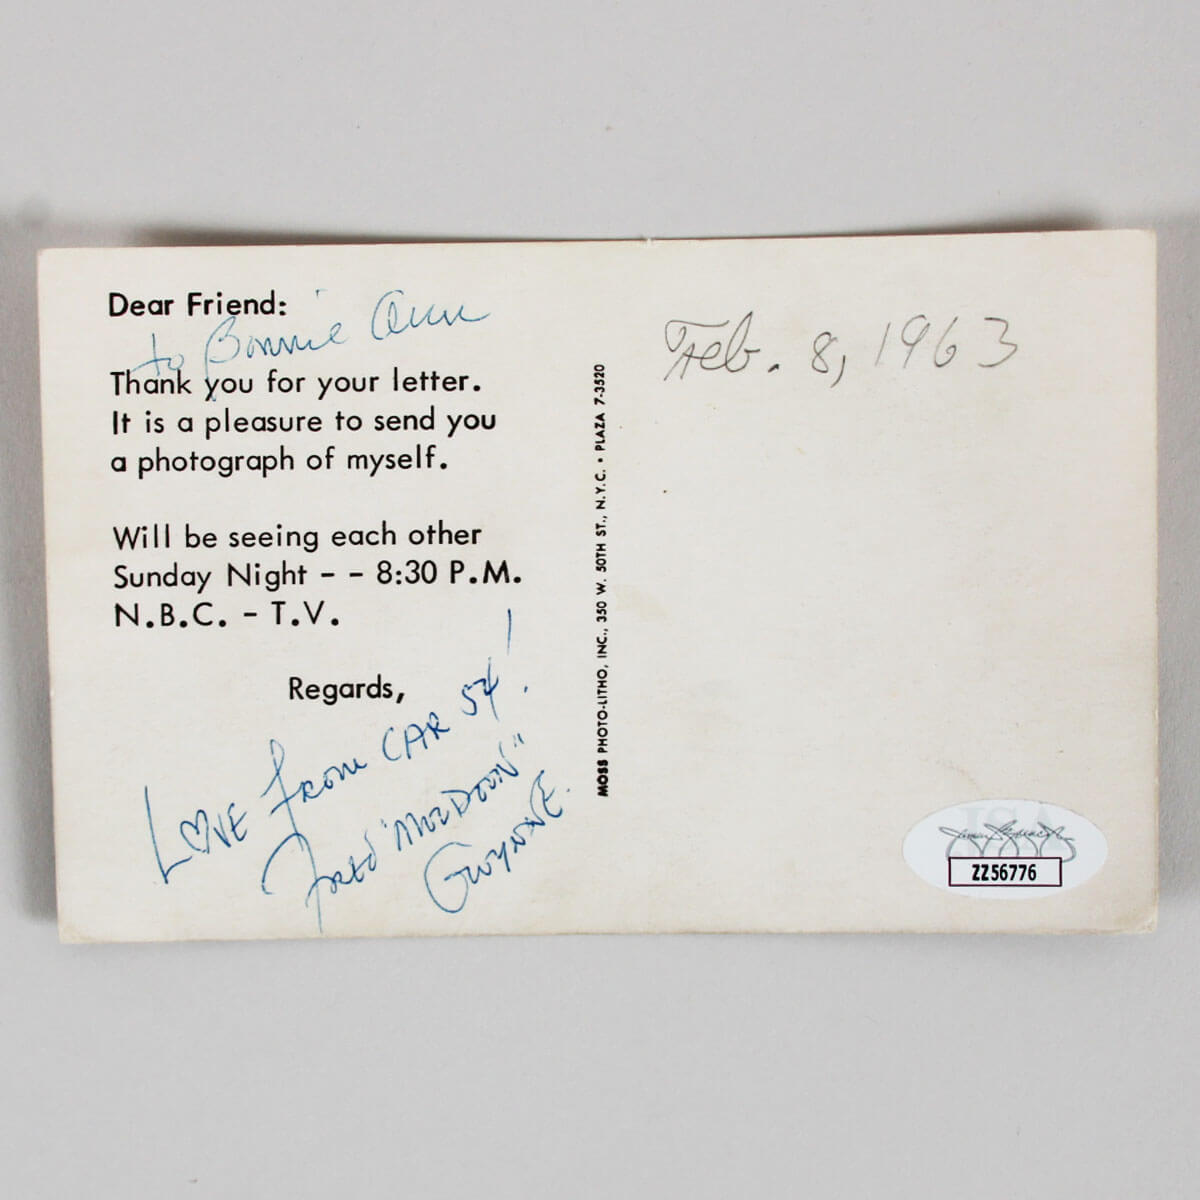 Dear Friend:
to Bonnie Ann
Thank you for your letter.
It is a pleasure to send you
a photograph of myself.
Will be seeing each other
Sunday Night - - 8:30 P.M.
N.B.C. - T.V.
Regards,
LOVE FROM CAR 54!
FRED "MULDOON"
GWYNNE.
MOSS PHOTO-LITHO, INC., 350 W. 50TH ST., N.Y.C. • PLAZA 7-3520
Feb. 8, 1963
JSA
ZZ56776